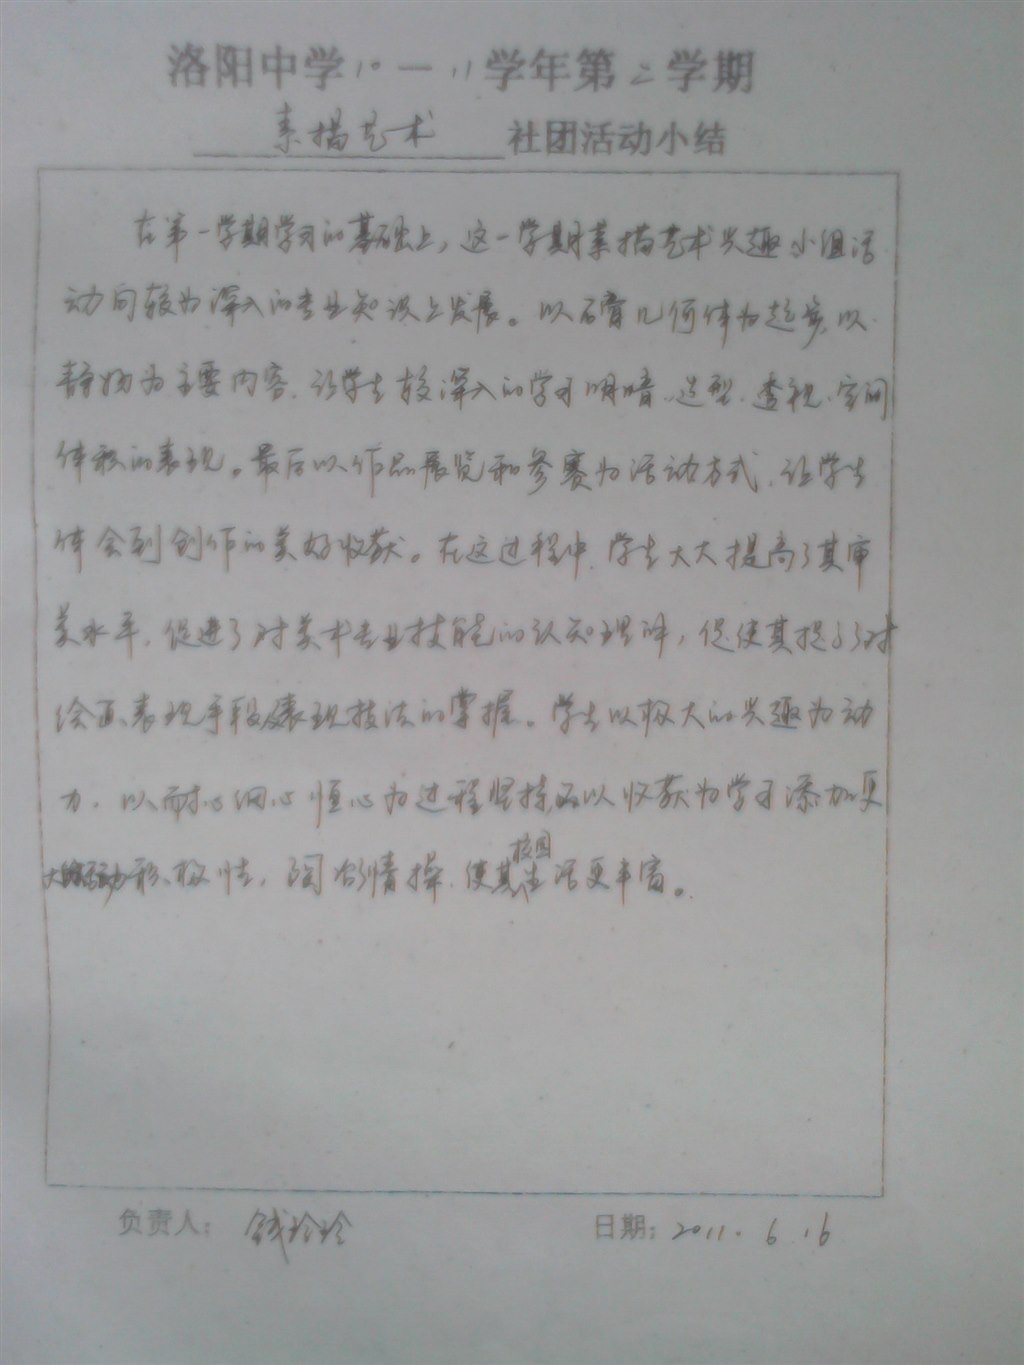 洛阳中学10-11学年第二学期
素描艺术 社团活动小结
在第一学期学习的基础上，这一学期素描艺术兴趣小组活
动向较为深入的专业知识上发展。以石膏几何体为起步，以
静物为主要内容，让学生较深入的学习明暗、造型、透视、空间
体积的表现。最后以作品展览和参赛为活动方式，让学生
体会到创作的美好收获。在这过程中，学生大大提高了其审
美水平，促进了对美术专业技能的认知理解，促使其提高了对
绘画表现手段及表现技法的掌握。学生以极大的兴趣为动
力，以耐心细心恒心为过程坚持，以收获为学习添加更
大的积极性，陶冶情操，使其校园生活更丰富。
负责人：钱玲玲 日期：2011.6.16